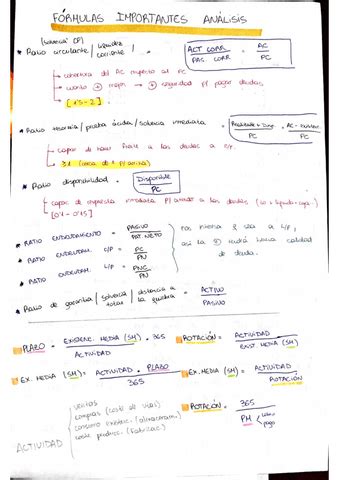 FÓRMULAS IMPORTANTES ANÁLISIS
(solvencia CP)
* Ratio circulante / liquidez / corriente = ACT CORR / PAS CORR = AC / PC
→ cobertura del AC respecto al PC
→ cuanto + mejor → + seguridad p/ pagar deudas
[1'5 - 2]
* Ratio tesorería / prueba ácida / solvencia inmediata = Realizable + Disp / PC = AC - Existenc / PC
→ capac de hacer frente a las deudas a c/p.
→ 
* Ratio disponibilidad = Disponible / PC
capac de respuesta inmediata p/ atender a las deudas
[0'1 - 0'15]
* RATIO ENDEUDAMIENTO = PASIVO / PAT NETO
* RATIO ENDEUDAM. C/P = PC / PN
* RATIO ENDEUDAM. L/P = PNC / PN
nos interesa a L/P, así la tendrá buena calidad de deuda.
* Ratio de garantía / solvencia total / distancia a la quiebra = ACTIVO / PASIVO
PLAZO = EXISTENC. MEDIA (SM) · 365 / ACTIVIDAD
ROTACIÓN = ACTIVIDAD / EXIST MEDIA (SM)
EX. MEDIA (SM) = ACTIVIDAD · PLAZO / 365
EX. MEDIA (SM) = ACTIVIDAD / ROTACIÓN
ACTIVIDAD
ventas
compras
consumo
coste produc. (fabricac)
ROTACIÓN = 365 / PM
cobro
pago